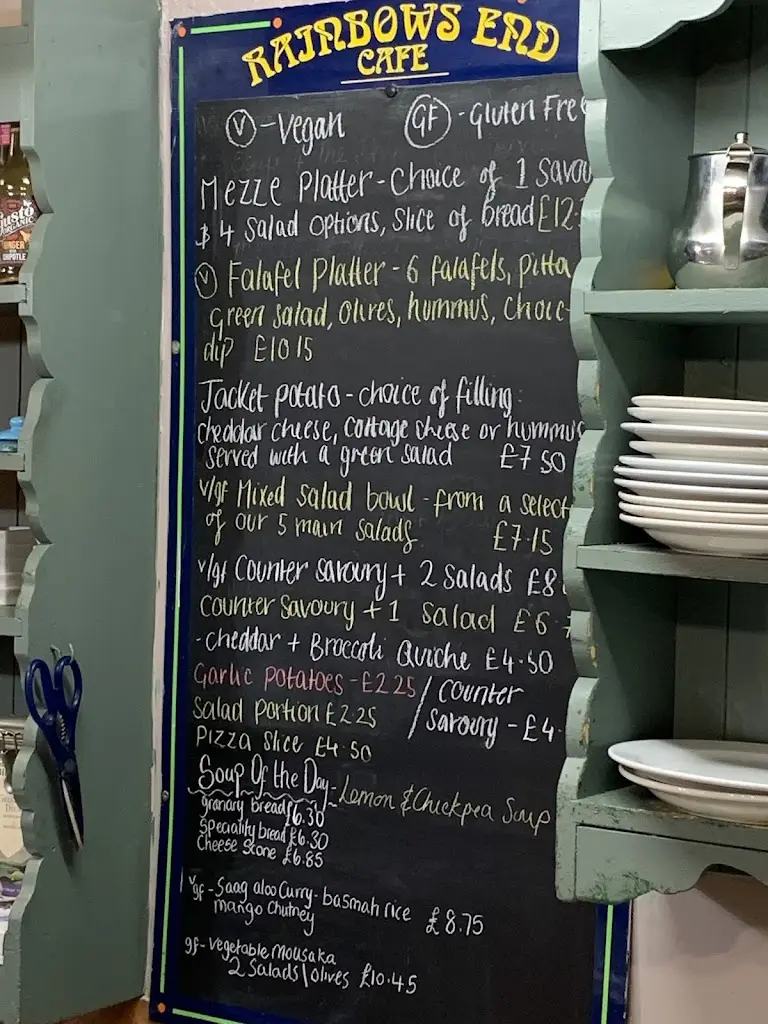 RAINBOWS END
CAFE
V - Vegan GF - Gluten Fre
Mezze Platter - Choice of 1 Savou
& 4 Salad Options, Slice of bread £12.
V Falafel Platter - 6 falafels, pitta
green salad, olives, hummus, choic
dip £10 15
Jacket potato - choice of filling:
cheddar cheese, cottage cheese or hummus
served with a green salad £7 50
v/gf Mixed salad bowl - from a select
of our 5 main salads £7.15
v/gf Counter savoury + 2 Salads £8
Counter Savoury + 1 Salad £6.7
- cheddar + Broccoli Quiche £4.50
Garlic Potatoes - £2.25 / Counter
Salad Portion £2.25 / Savoury - £4.
Pizza Slice £4.50
Soup Of the Day - Lemon & Chickpea Soup
granary bread £6.30
Speciality bread £6.30
Cheese Scone £6.85
v gf - Saag aloo Curry - basmah rice
mango Chutney £8.75
gf - Vegetable Mousaka
2 Salads \ Olives £10.45
Gusto
ORGANIC
GINGER
CHIPOTLE